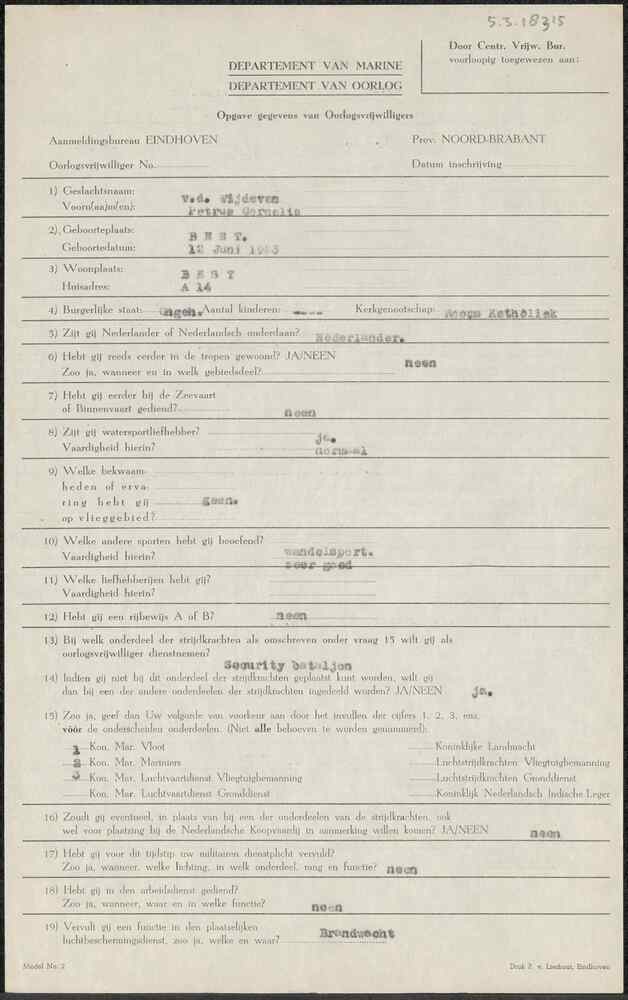 5.3.18315
Door Centr. Vrijw. Bur.
voorloopig toegewezen aan:
DEPARTEMENT VAN MARINE
DEPARTEMENT VAN OORLOG
Opgave gegevens van Oorlogsvrijwilligers
Aanmeldingsbureau EINDHOVEN Prov. NOORD-BRABANT
Oorlogsvrijwilliger No. Datum inschrijving
1) Geslachtsnaam: v.d. Wijdeven
Voorn(aa)m(en): Petrus Cornelis
2) Geboorteplaats: B E S T.
Geboortedatum: 12 Juni
3) Woonplaats: B E S T
Huisadres: A 14
4) Burgerlijke staat: Ongeh. Aantal kinderen: ---- Kerkgenootschap: Rooms Katholiek
5) Zijt gij Nederlander of Nederlandsch onderdaan? Nederlander.
6) Hebt gij reeds eerder in de tropen gewoond? JA/NEEN neen
Zoo ja, wanneer en in welk gebiedsdeel?
7) Hebt gij eerder bij de Zeevaart
of Binnenvaart gediend? neen
8) Zijt gij watersportliefhebber? ja.
Vaardigheid hierin? normaal
9) Welke bekwaam-
heden of erva-
ring hebt gij geen.
op vlieggebied?
10) Welke andere sporten hebt gij beoefend? wandelsport.
Vaardigheid hierin? zeer goed
11) Welke liefhebberijen hebt gij?
Vaardigheid hierin?
12) Hebt gij een rijbewijs A of B? neen
13) Bij welk onderdeel der strijdkrachten als omschreven onder vraag 15 wilt gij als
oorlogsvrijwilliger dienstnemen?
Security bataljon
14) Indien gij niet bij dit onderdeel der strijdkrachten geplaatst kunt worden, wilt gij
dan bij een der andere onderdeelen der strijdkrachten ingedeeld worden? JA/NEEN ja.
15) Zoo ja, geef dan Uw volgorde van voorkeur aan door het invullen der cijfers 1, 2, 3, enz.
vóór de onderscheiden onderdeelen. (Niet alle behoeven te worden genummerd):
1 Kon. Mar. Vloot Koninklijke Landmacht
2 Kon. Mar. Mariniers Luchtstrijdkrachten Vliegtuigbemanning
3 Kon. Mar. Luchtvaartdienst Vliegtuigbemanning Luchtstrijdkrachten Gronddienst
Kon. Mar. Luchtvaartdienst Gronddienst Koninklijk Nederlandsch Indische Leger
16) Zoudt gij eventueel, in plaats van bij een der onderdeelen van de strijdkrachten, ook
wel voor plaatzing bij de Nederlandsche Koopvaardij in aanmerking willen komen? JA/NEEN neen
17) Hebt gij voor dit tijdstip uw militairen dienstplicht vervuld?
Zoo ja, wanneer, welke lichting, in welk onderdeel, rang en functie? neen
18) Hebt gij in den arbeidsdienst gediend?
Zoo ja, wanneer, waar en in welke functie? neen
19) Vervult gij een functie in den plaatselijken
luchtbeschermingsdienst, zoo ja, welke en waar? Brandwacht
Model No. 2 Druk Z. v. Lienhout, Eindhoven